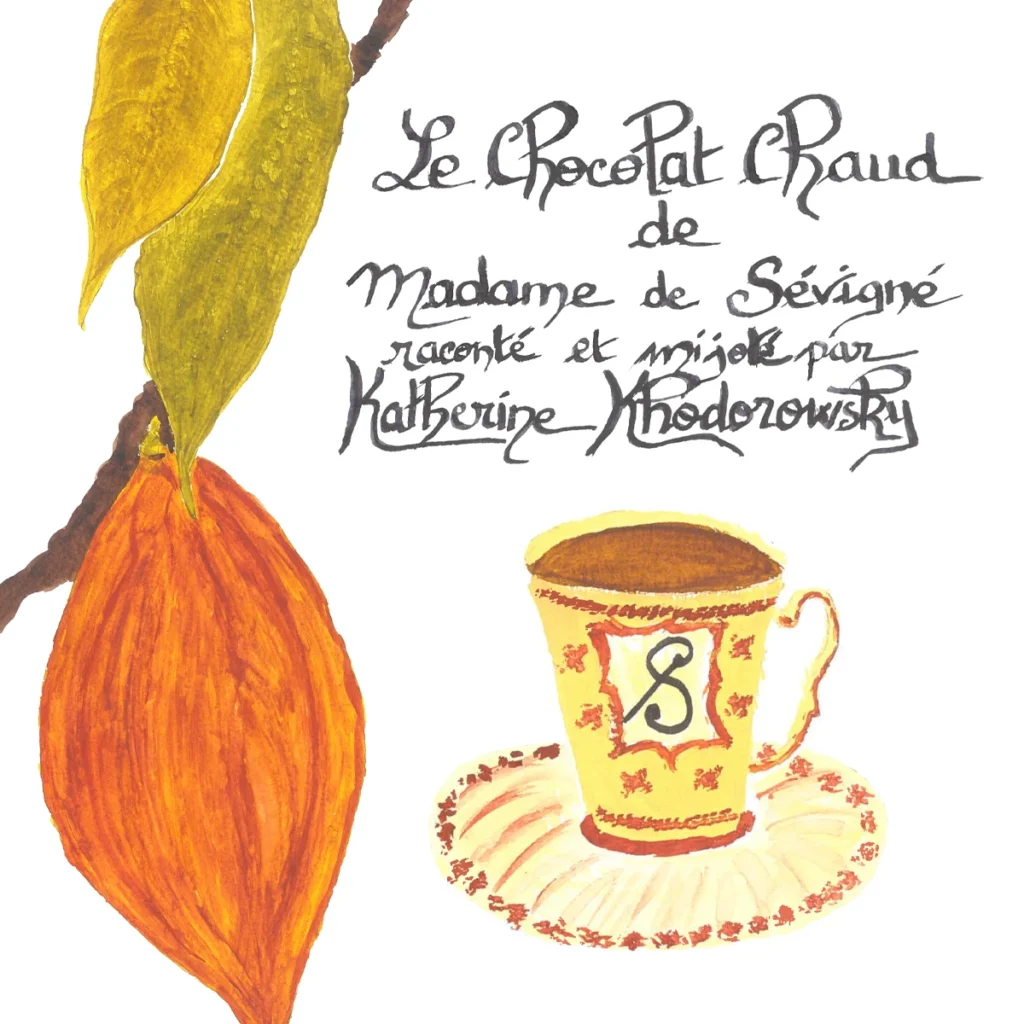 Le Chocolat Chaud
de
Madame de Sévigné
raconté et mijoté par
Katherine Khodorowsky
S